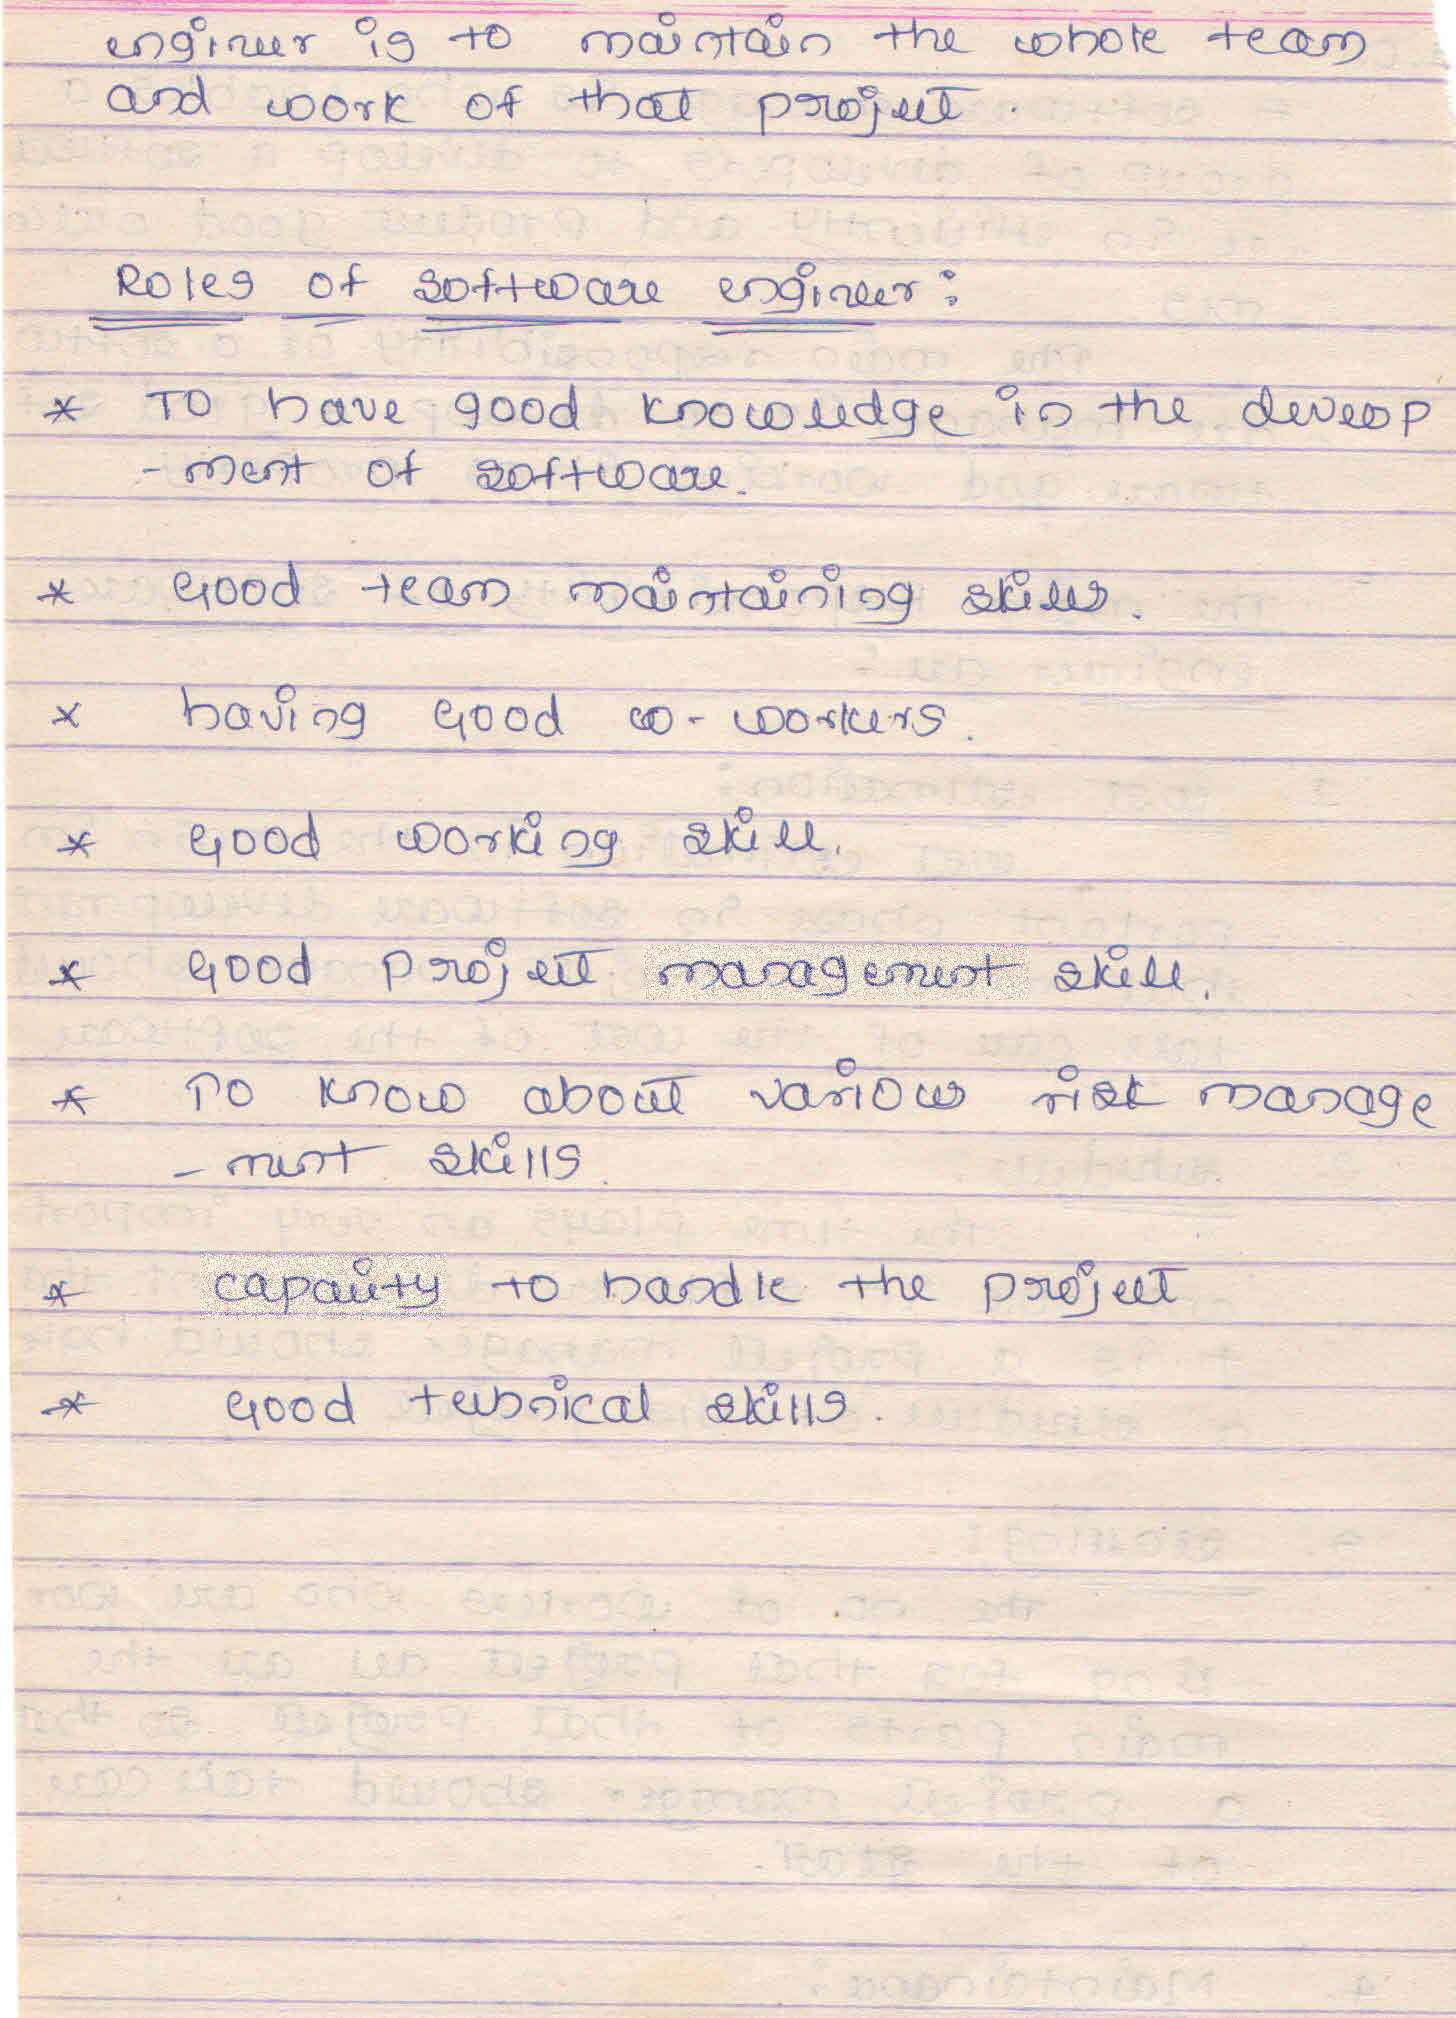 engineer is to maintain the whole team
and work of that project.
Roles of software engineer:
* To have good knowledge in the develop
-ment of software.
* Good team maintaining skills.
* having Good co-workers.
* Good working skill.
* Good project management skill.
* To know about various risk manage
-ment skills.
* capacity to handle the project
* Good technical skills.